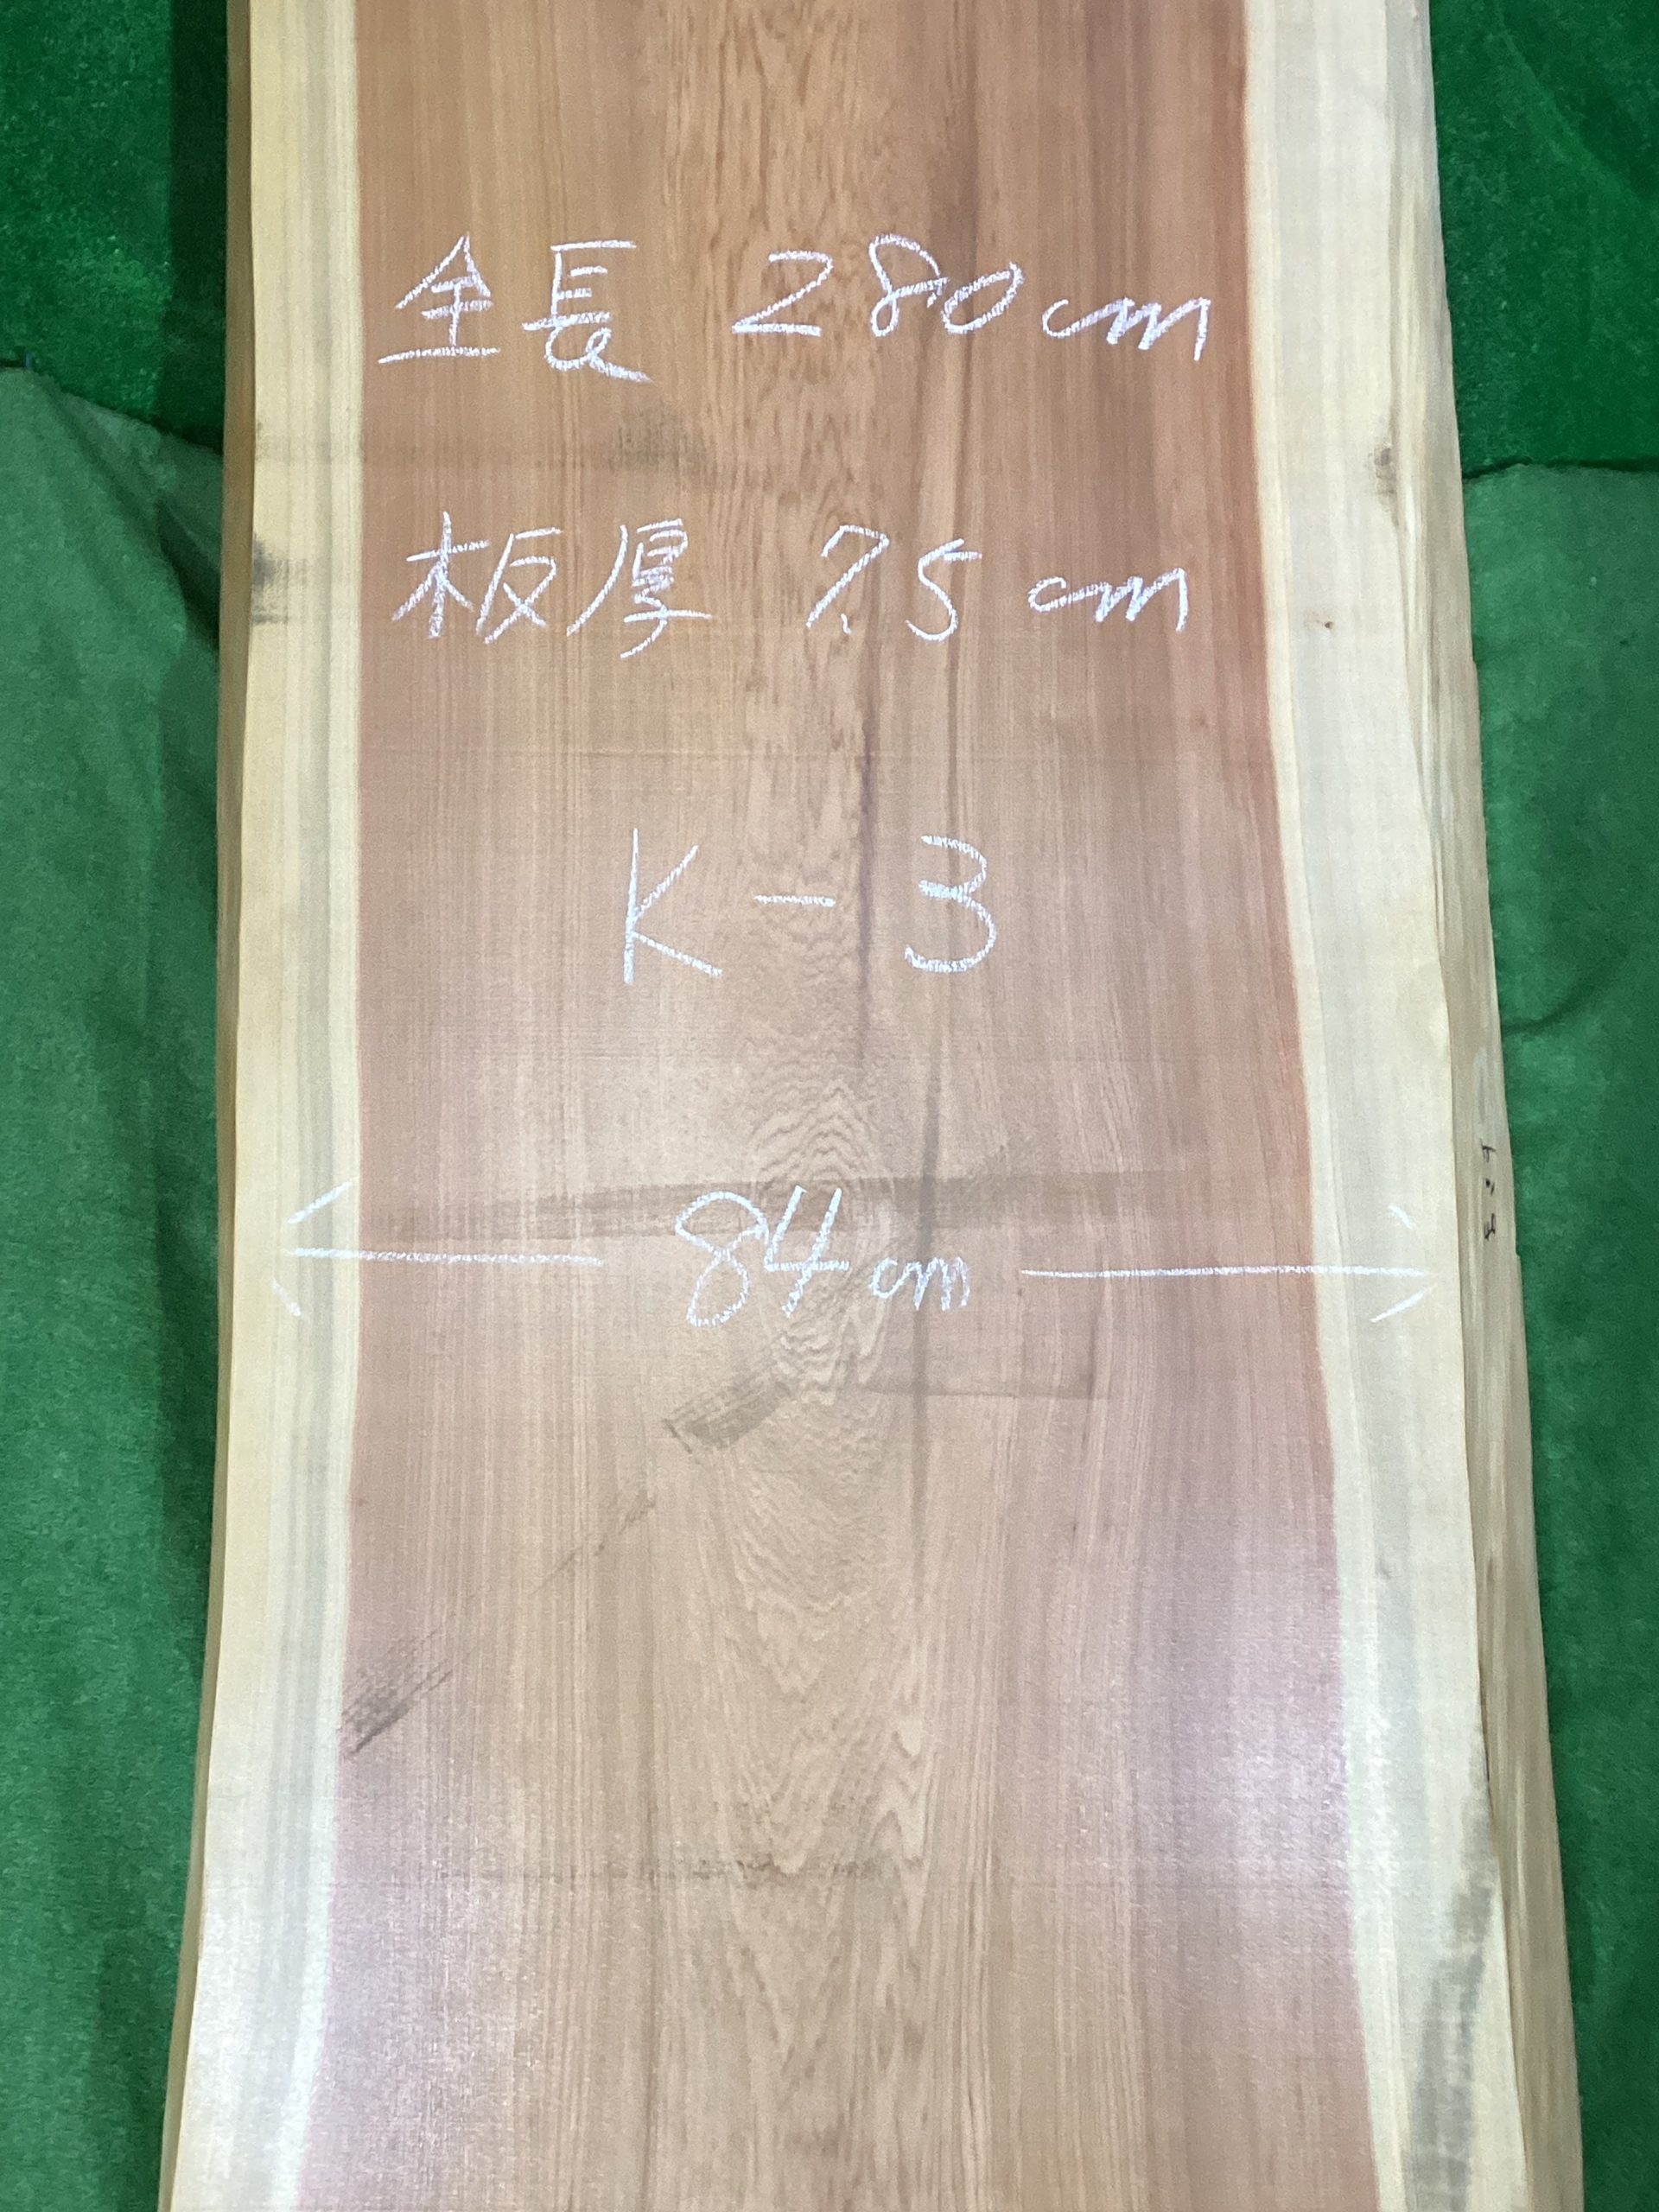 全長 280cm
板厚 7.5cm
K-3
84cm